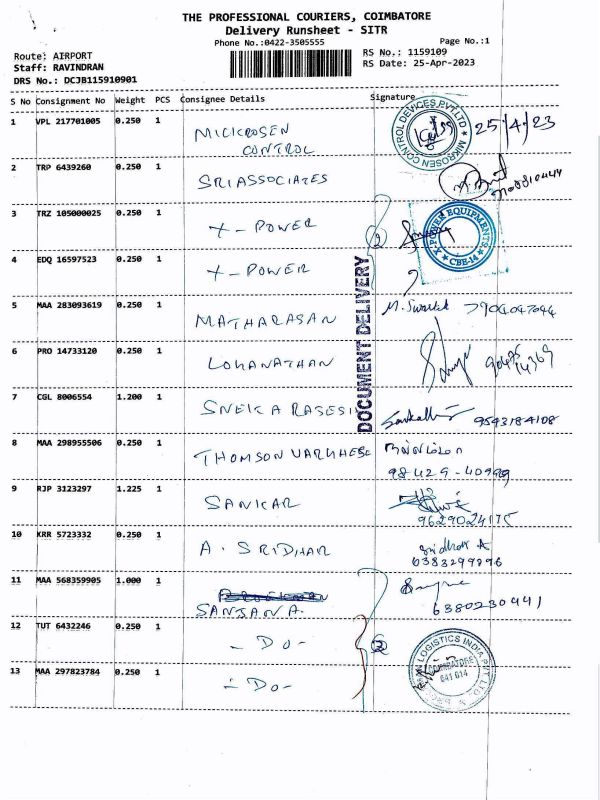 THE PROFESSIONAL COURIERS, COIMBATORE
Delivery Runsheet - SITR
Phone No.:0422-3505555 Page No.:1
Route: AIRPORT RS No.: 1159109
Staff: RAVINDRAN RS Date: 25-Apr-2023
DRS No.: DCJB115910901
S No Consignment No Weight PCS Consignee Details Signature
1 VPL 217701005 0.250 1 MICKROSEN CONTROL 25/4/23
MIKROSEN CONTROL DEVICES PVT LTD
2 TRP 6439260 0.250 1 SRI ASSOCIATES
3 TRZ 105000025 0.250 1 X-POWER
X POWER EQUIPMENTS
CBE-14
4 EDQ 16597523 0.250 1 X-POWER
DOCUMENT DELIVERY
5 MAA 283093619 0.250 1 MATHARASAN
6 PRO 14733120 0.250 1 LOKANATHAN
7 CGL 8006554 1.200 1 9543184108
8 MAA 298955506 0.250 1 THOMSON VARGHESE
98429-40999
9 RJP 3123297 1.225 1 SANKAR
9629024175
10 KRR 5723332 0.250 1 A. SRIDHAR Sridhar A
6383299896
11 MAA 568359905 1.000 1
SANJANA. 6380230441
12 TUT 6432246 0.250 1 - DO -
LOGISTICS INDIA PVT LTD
COIMBATORE
641 014
13 MAA 297823784 0.250 1 - DO -